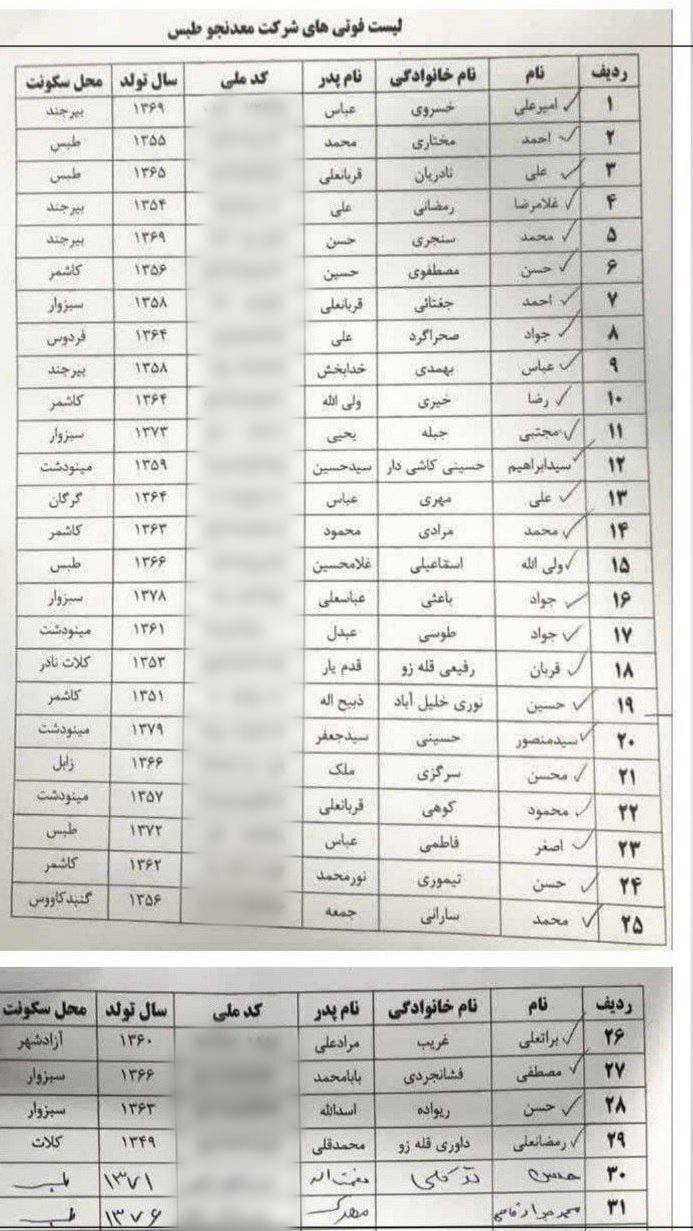 لیست فوتی های شرکت معدنجو طبس
ردیف نام نام خانوادگی نام پدر کد ملی سال تولد محل سکونت
۱ امیرعلی خسروی عباس ۱۳۶۹ بیرجند
۲ احمد مختاری محمد ۱۳۵۵ طبس
۳ علی نادریان قربانعلی ۱۳۶۵ طبس
۴ غلامرضا رمضانی علی ۱۳۵۴ بیرجند
۵ محمد سنجری حسن ۱۳۶۹ بیرجند
۶ حسن مصطفوی حسین ۱۳۵۶ کاشمر
۷ احمد جغتائی قربانعلی ۱۳۵۸ سبزوار
۸ جواد صحراگرد علی ۱۳۶۴ فردوس
۹ عباس بهمدی خدابخش ۱۳۵۸ بیرجند
۱۰ رضا خیری ولی الله ۱۳۶۴ کاشمر
۱۱ مجتبی جبله یحیی ۱۳۷۳ سبزوار
۱۲ سیدابراهیم حسینی کاشی دار سیدحسین ۱۳۵۹ مینودشت
۱۳ علی مهری عباس ۱۳۶۴ گرگان
۱۴ محمد مرادی محمود ۱۳۶۳ کاشمر
۱۵ ولی الله اسماعیلی غلامحسین ۱۳۶۶ طبس
۱۶ جواد باعثی عباسعلی ۱۳۷۸ سبزوار
۱۷ جواد طوسی عبدل ۱۳۶۱ مینودشت
۱۸ قربان رفیعی قله زو قدم یار ۱۳۵۳ کلات نادر
۱۹ حسین نوری خلیل آباد ذبیح اله ۱۳۵۱ کاشمر
۲۰ سیدمنصور حسینی سیدجعفر ۱۳۷۹ مینودشت
۲۱ محسن سرگزی ملک ۱۳۶۶ زابل
۲۲ محمود کوهی قربانعلی ۱۳۵۷ مینودشت
۲۳ اصغر فاطمی عباس ۱۳۷۲ طبس
۲۴ حسن تیموری نورمحمد ۱۳۶۲ کاشمر
۲۵ محمد سارانی جمعه ۱۳۵۶ گنبدکاووس
ردیف نام نام خانوادگی نام پدر کد ملی سال تولد محل سکونت
۲۶ براتعلی غریب مرادعلی ۱۳۶۰ آزادشهر
۲۷ مصطفی فشانجردی بابامحمد ۱۳۶۶ سبزوار
۲۸ حسن ریواده اسدالله ۱۳۶۳ سبزوار
۲۹ رمضانعلی داوری قله زو محمدقلی ۱۳۴۹ کلات
۳۰ ۱۳۷۱
۳۱ ۱۳۷۶